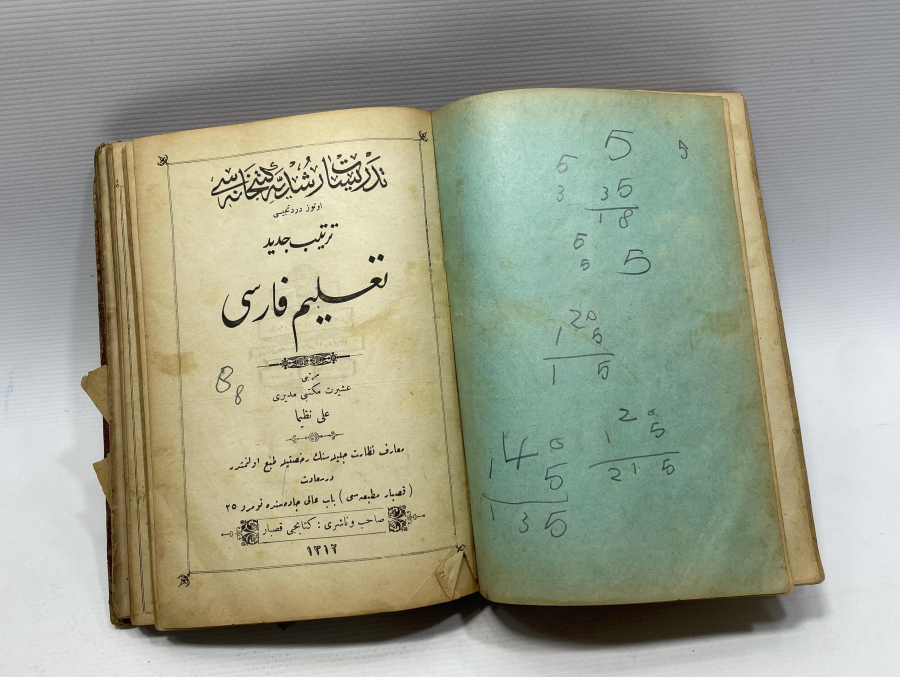 تدريسات رشديه كتبخانه سى
اوتوز دردنجيسى
ترتيب جديد
تعليم فارسى
8
8
مرتبى
عشيرت مكتبى مديرى
على نظيما
معارف نظارت جليله سنك رخصتيله طبع اولنمشدر
در سعادت
( قصبار مطبعه سى ) باب عالى جاده سنده نومرو ٢٥
صاحب و ناشرى : كتابجى قصبار
١٣١٢
5 5 5
3 35
1 8
5
5 5
2 0
1 5
1 5
1 4 0
5
1 3 5
2 0
1 5
2 1 5